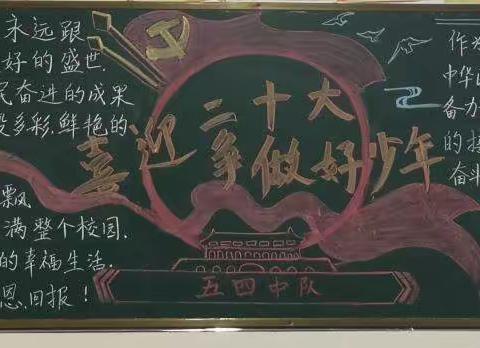 永远跟
好的盛世.
民奋进的成果
多彩,鲜艳的
飘
满整个校园.
的幸福生活.
恩,回报!
喜迎二十大
争做好少年
五四中队
作为
中华
备力
的接
奋斗